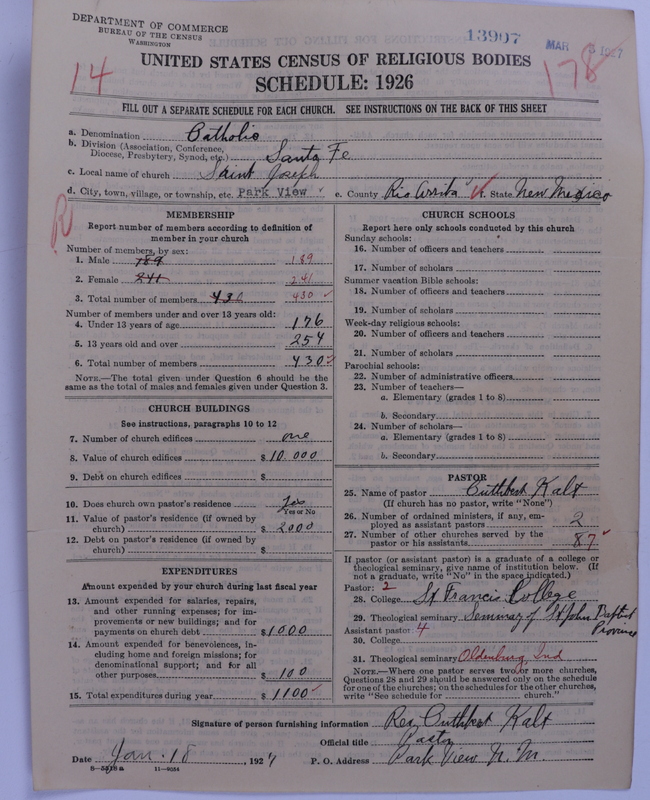 DEPARTMENT OF COMMERCE
BUREAU OF THE CENSUS
WASHINGTON
13907
MAR 5 1927
14
178
UNITED STATES CENSUS OF RELIGIOUS BODIES
SCHEDULE: 1926
FILL OUT A SEPARATE SCHEDULE FOR EACH CHURCH. SEE INSTRUCTIONS ON THE BACK OF THIS SHEET
a. Denomination Catholic
b. Division (Association, Conference, Diocese, Presbytery, Synod, etc.) Santa Fe
c. Local name of church Saint Joseph
d. City, town, village, or township, etc. Park View e. County Rio Arriba f. State New Mexico
R
MEMBERSHIP
Report number of members according to definition of
member in your church
Number of members, by sex:
1. Male 189 189
2. Female 241 241
3. Total number of members 430 430
Number of members under and over 13 years old:
4. Under 13 years of age 176
5. 13 years old and over 254
6. Total number of members 430
NOTE.—The total given under Question 6 should be
the same as the total of males and females given under Question 3.
CHURCH BUILDINGS
See instructions, paragraphs 10 to 12
7. Number of church edifices one
8. Value of church edifices $10.000
9. Debt on church edifices $
10. Does church own pastor's residence Yes
Yes or No
11. Value of pastor's residence (if owned by
church) $ 2000
12. Debt on pastor's residence (if owned by
church) $
EXPENDITURES
Amount expended by your church during last fiscal year
13. Amount expended for salaries, repairs,
and other running expenses; for im-
provements or new buildings; and for
payments on church debt $1000
14. Amount expended for benevolences, in-
cluding home and foreign missions; for
denominational support; and for all
other purposes $ 100
15. Total expenditures during year $ 1100
CHURCH SCHOOLS
Report here only schools conducted by this church
Sunday schools:
16. Number of officers and teachers
17. Number of scholars
Summer vacation Bible schools:
18. Number of officers and teachers
19. Number of scholars
Week-day religious schools:
20. Number of officers and teachers
21. Number of scholars
Parochial schools:
22. Number of administrative officers
23. Number of teachers—
a. Elementary (grades 1 to 8)
b. Secondary
24. Number of scholars—
a. Elementary (grades 1 to 8)
b. Secondary
PASTOR
25. Name of pastor Cuthbert Kalt
(If church has no pastor, write "None")
26. Number of ordained ministers, if any, em-
ployed as assistant pastors 2
27. Number of other churches served by the
pastor or his assistants
If pastor (or assistant pastor) is a graduate of a college or
theological seminary, give name of institution below. (If
not a graduate, write "No" in the space indicated.)
Pastor: 2
28. College St Francis College
29. Theological seminary Seminary of St John Baptist Province
Assistant pastor: 4
30. College
31. Theological seminary Oldenburg, Ind
NOTE.—Where one pastor serves two or more churches,
Questions 28 and 29 should be answered only on the schedule
for one of the churches; on the schedules for the other churches,
write "See schedule for church."
Signature of person furnishing information Rev. Cuthbert Kalt
Official title Pastor
Date Jan. 18, 1927 P. O. Address Park View N. M.
11-9084